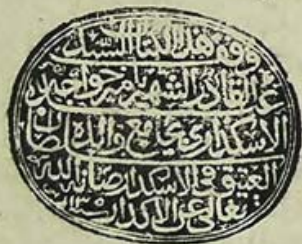 وقف هذا الكتاب السيد
عبد القادر الشهير بامير خواجه
الاسكداري في مع والده سلطان
العتيق في الاسكدار صانه الله
تعالى عن الاكدار